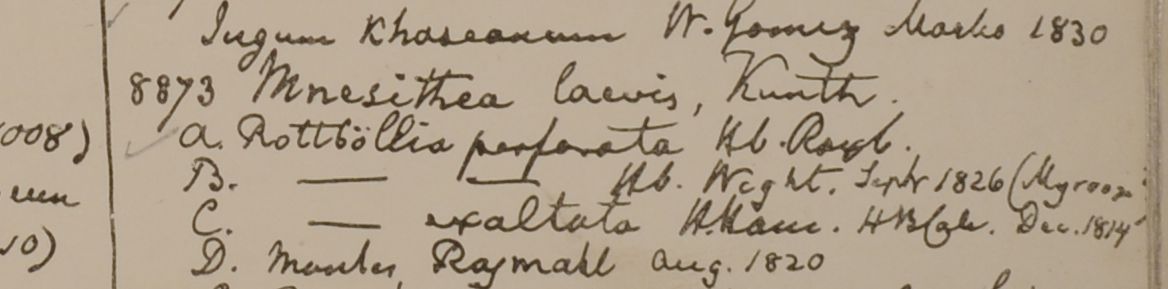 Jugum Khaseanum W. Gomez Marko 1830
8873 Mnesithea laevis, Kunth.
008) a. Rottböllia perforata Hb. Roxb.
B. — — Hb. Wight. Septr 1826
C. — exaltata H.Ham. HBCalc. Dec. 1814
10) D. Montes, Rajmahl Aug. 1820